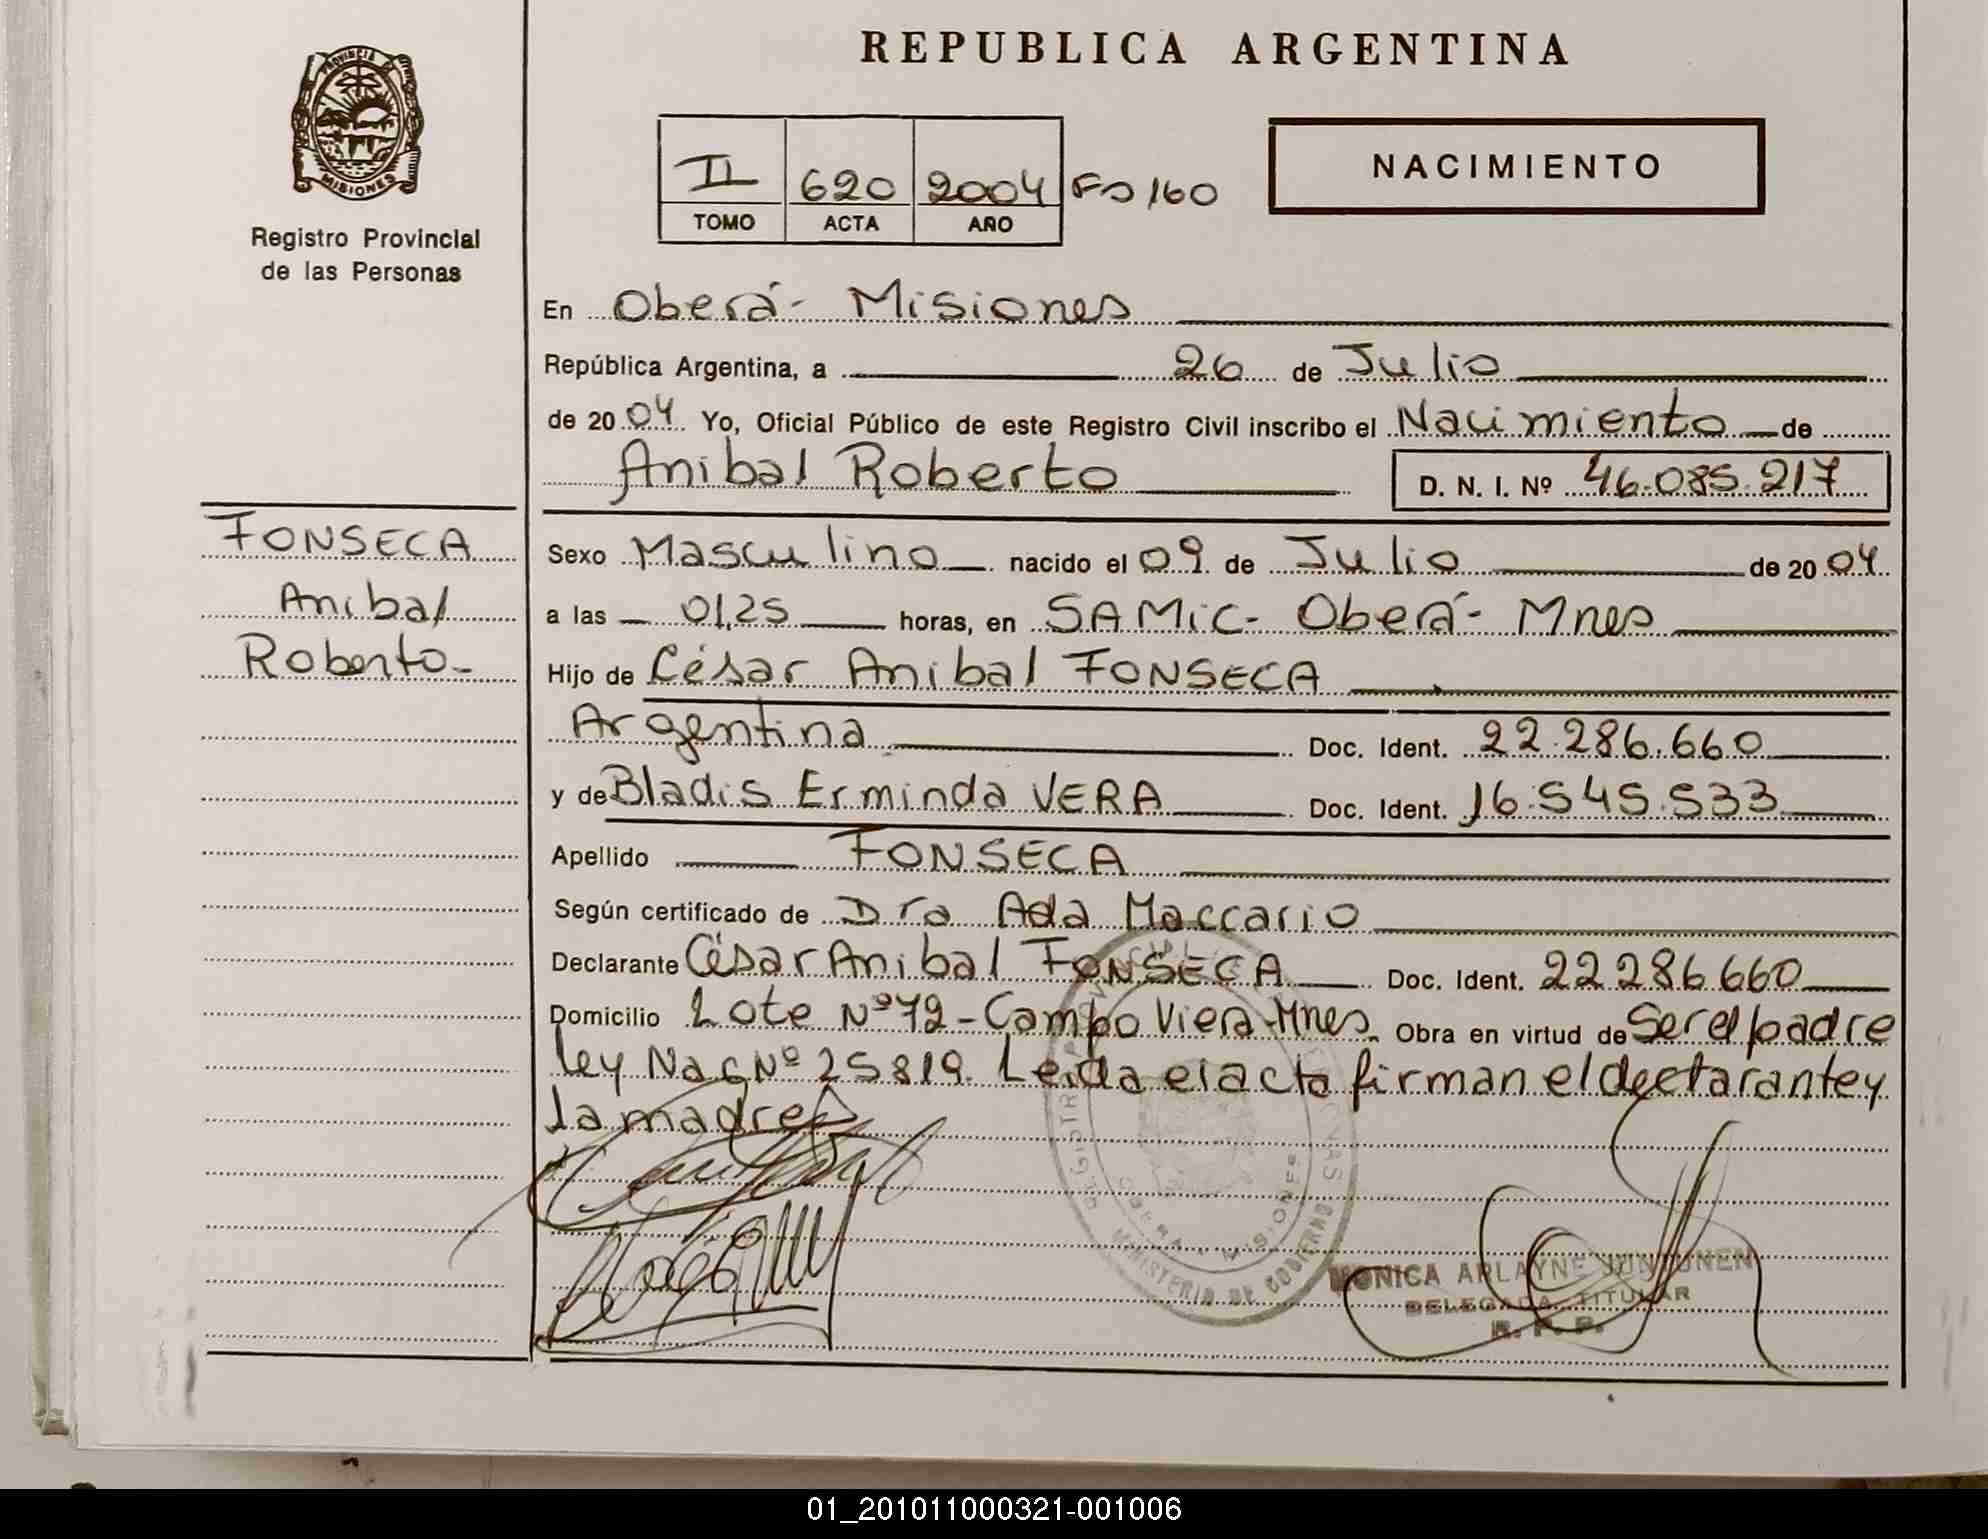 PROVINCIA DE
MISIONES
Registro Provincial
de las Personas
REPUBLICA ARGENTINA
II 620 2004 Fo 160
TOMO ACTA AÑO
NACIMIENTO
En Oberá - Misiones
República Argentina, a 26 de Julio
de 2004 Yo, Oficial Público de este Registro Civil inscribo el Nacimiento de
Anibal Roberto D. N. I. Nº 46.085.217
FONSECA
Anibal
Roberto-
Sexo Masculino nacido el 09 de Julio de 2004
a las 01,25 horas, en SAMiC- Oberá - Mnes
Hijo de César Anibal FONSECA
Argentina Doc. Ident. 22.286.660
y de Bladis Erminda VERA Doc. Ident. 16.545.533
Apellido FONSECA
Según certificado de Dra Ada Maccario
Declarante César Anibal FONSECA Doc. Ident. 22286660
Domicilio Lote Nº 72 - Campo Viera - Mnes. Obra en virtud de Ser el padre
ley Nac Nº 25819. Leida el acta firman el declarante y
la madre
OBERA - MISIONES
MINISTERIO DE GOBIERNO
MONICA ARLAYNE
DELEGADA TITULAR
R. P. P.
01_201011000321-001006